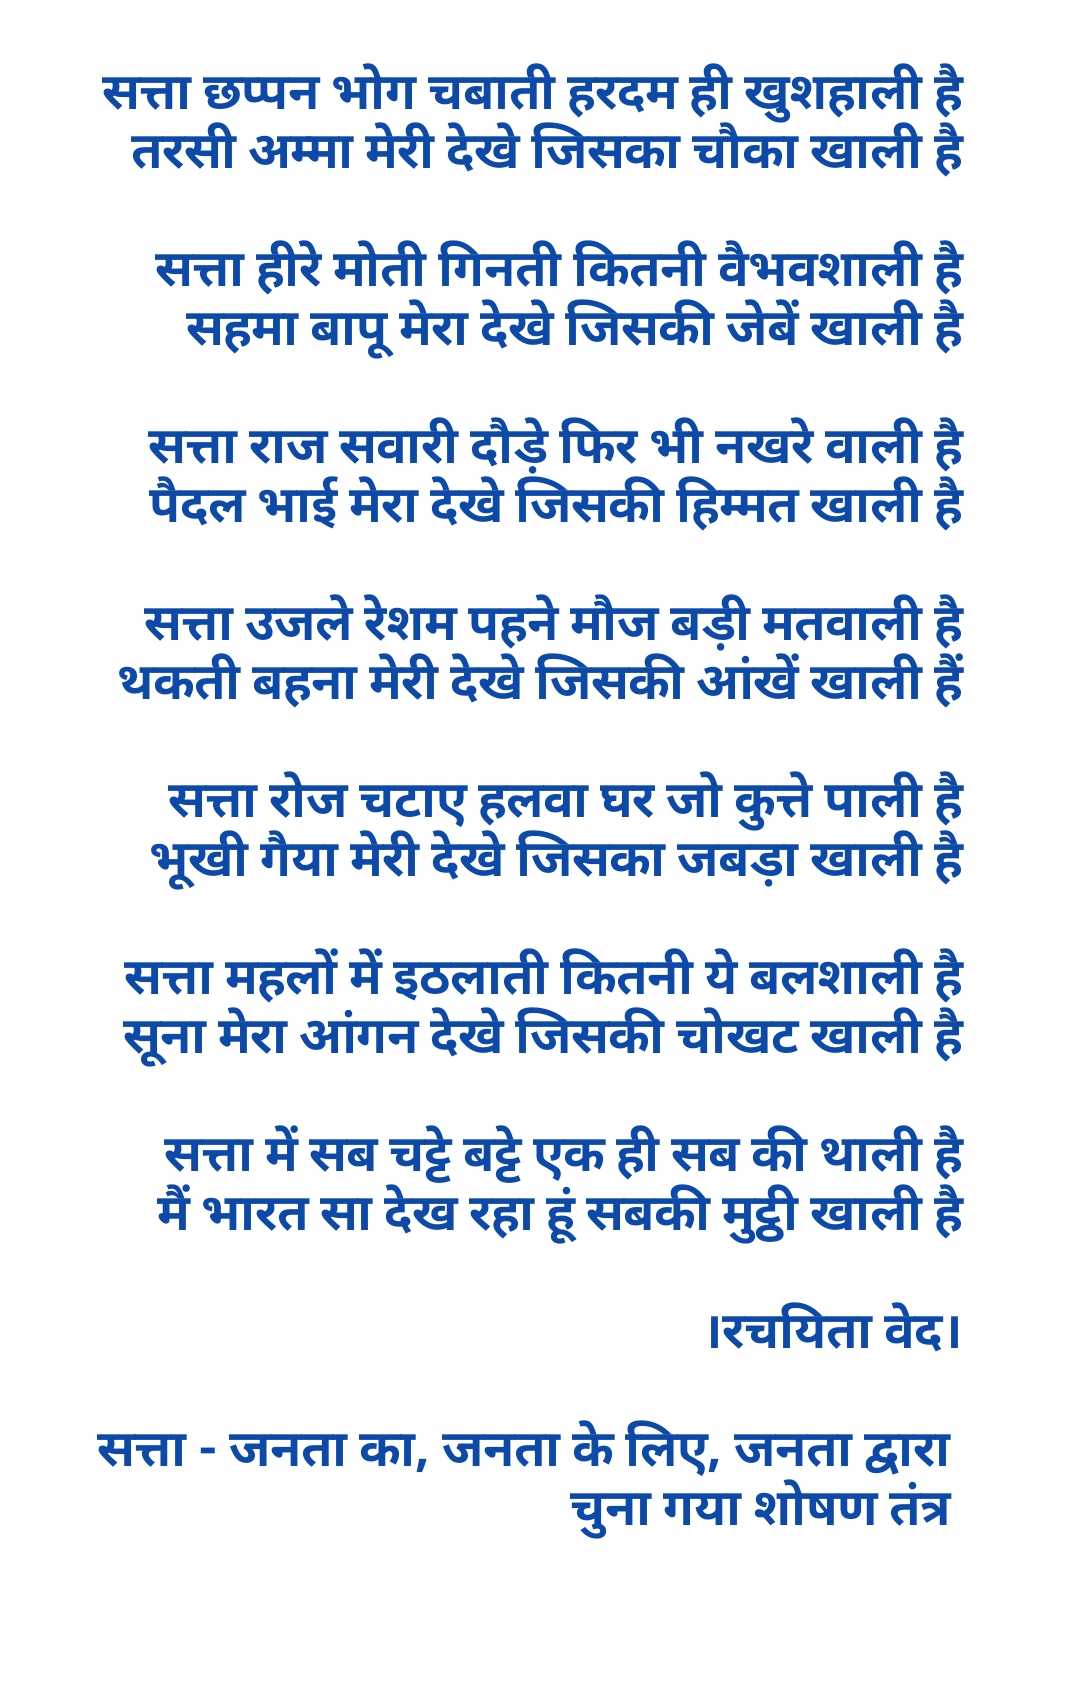 सत्ता छप्पन भोग चबाती हरदम ही खुशहाली है
तरसी अम्मा मेरी देखे जिसका चौका खाली है
सत्ता हीरे मोती गिनती कितनी वैभवशाली है
सहमा बापू मेरा देखे जिसकी जेबें खाली है
सत्ता राज सवारी दौड़े फिर भी नखरे वाली है
पैदल भाई मेरा देखे जिसकी हिम्मत खाली है
सत्ता उजले रेशम पहने मौज बड़ी मतवाली है
थकती बहना मेरी देखे जिसकी आंखें खाली हैं
सत्ता रोज चटाए हलवा घर जो कुत्ते पाली है
भूखी गैया मेरी देखे जिसका जबड़ा खाली है
सत्ता महलों में इठलाती कितनी ये बलशाली है
सूना मेरा आंगन देखे जिसकी चोखट खाली है
सत्ता में सब चट्टे बट्टे एक ही सब की थाली है
मैं भारत सा देख रहा हूं सबकी मुट्ठी खाली है
।रचयिता वेद।
सत्ता - जनता का, जनता के लिए, जनता द्वारा
चुना गया शोषण तंत्र